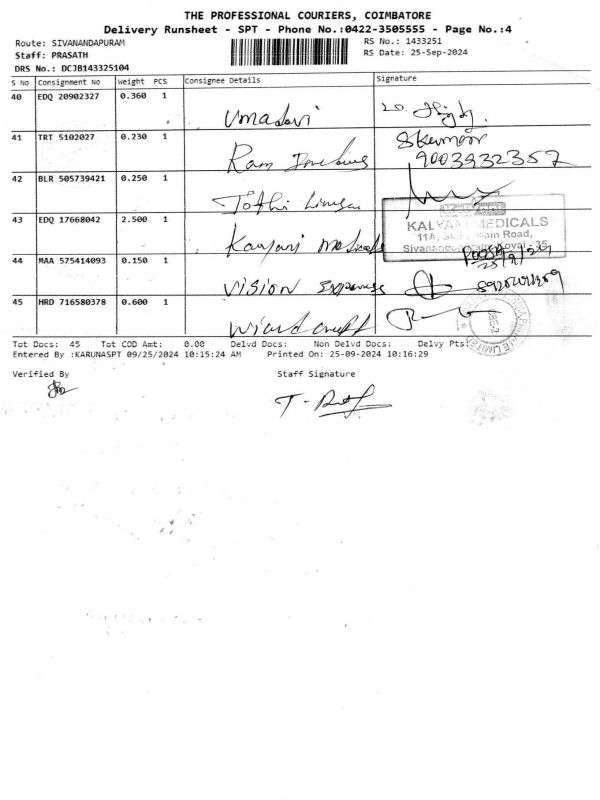 THE PROFESSIONAL COURIERS, COIMBATORE
Delivery Runsheet - SPT - Phone No.:0422-3505555 - Page No.:4
Route: SIVANANDAPURAM RS No.: 1433251
Staff: PRASATH RS Date: 25-Sep-2024
DRS No.: DCJB143325104
S No Consignment No Weight PCS Consignee Details Signature
40 EDQ 20902327 0.360 1
Umadevi
41 TRT 5102027 0.230 1 SKumar
Ram 9003932357
42 BLR 505739421 0.250 1
Jothi
43 EDQ 17668042 2.500 1 KALYANI MEDICALS
11A, Main Road,
Kalyani Medicals Kovai - 35
44 MAA 575414093 0.150 1
Vision Express
45 HRD 716580378 0.600 1
Tot Docs: 45 Tot COD Amt: 0.00 Delvd Docs: Non Delvd Docs: Delvy Pts:
Entered By :KARUNASPT 09/25/2024 10:15:24 AM Printed On: 25-09-2024 10:16:29
Verified By Staff Signature